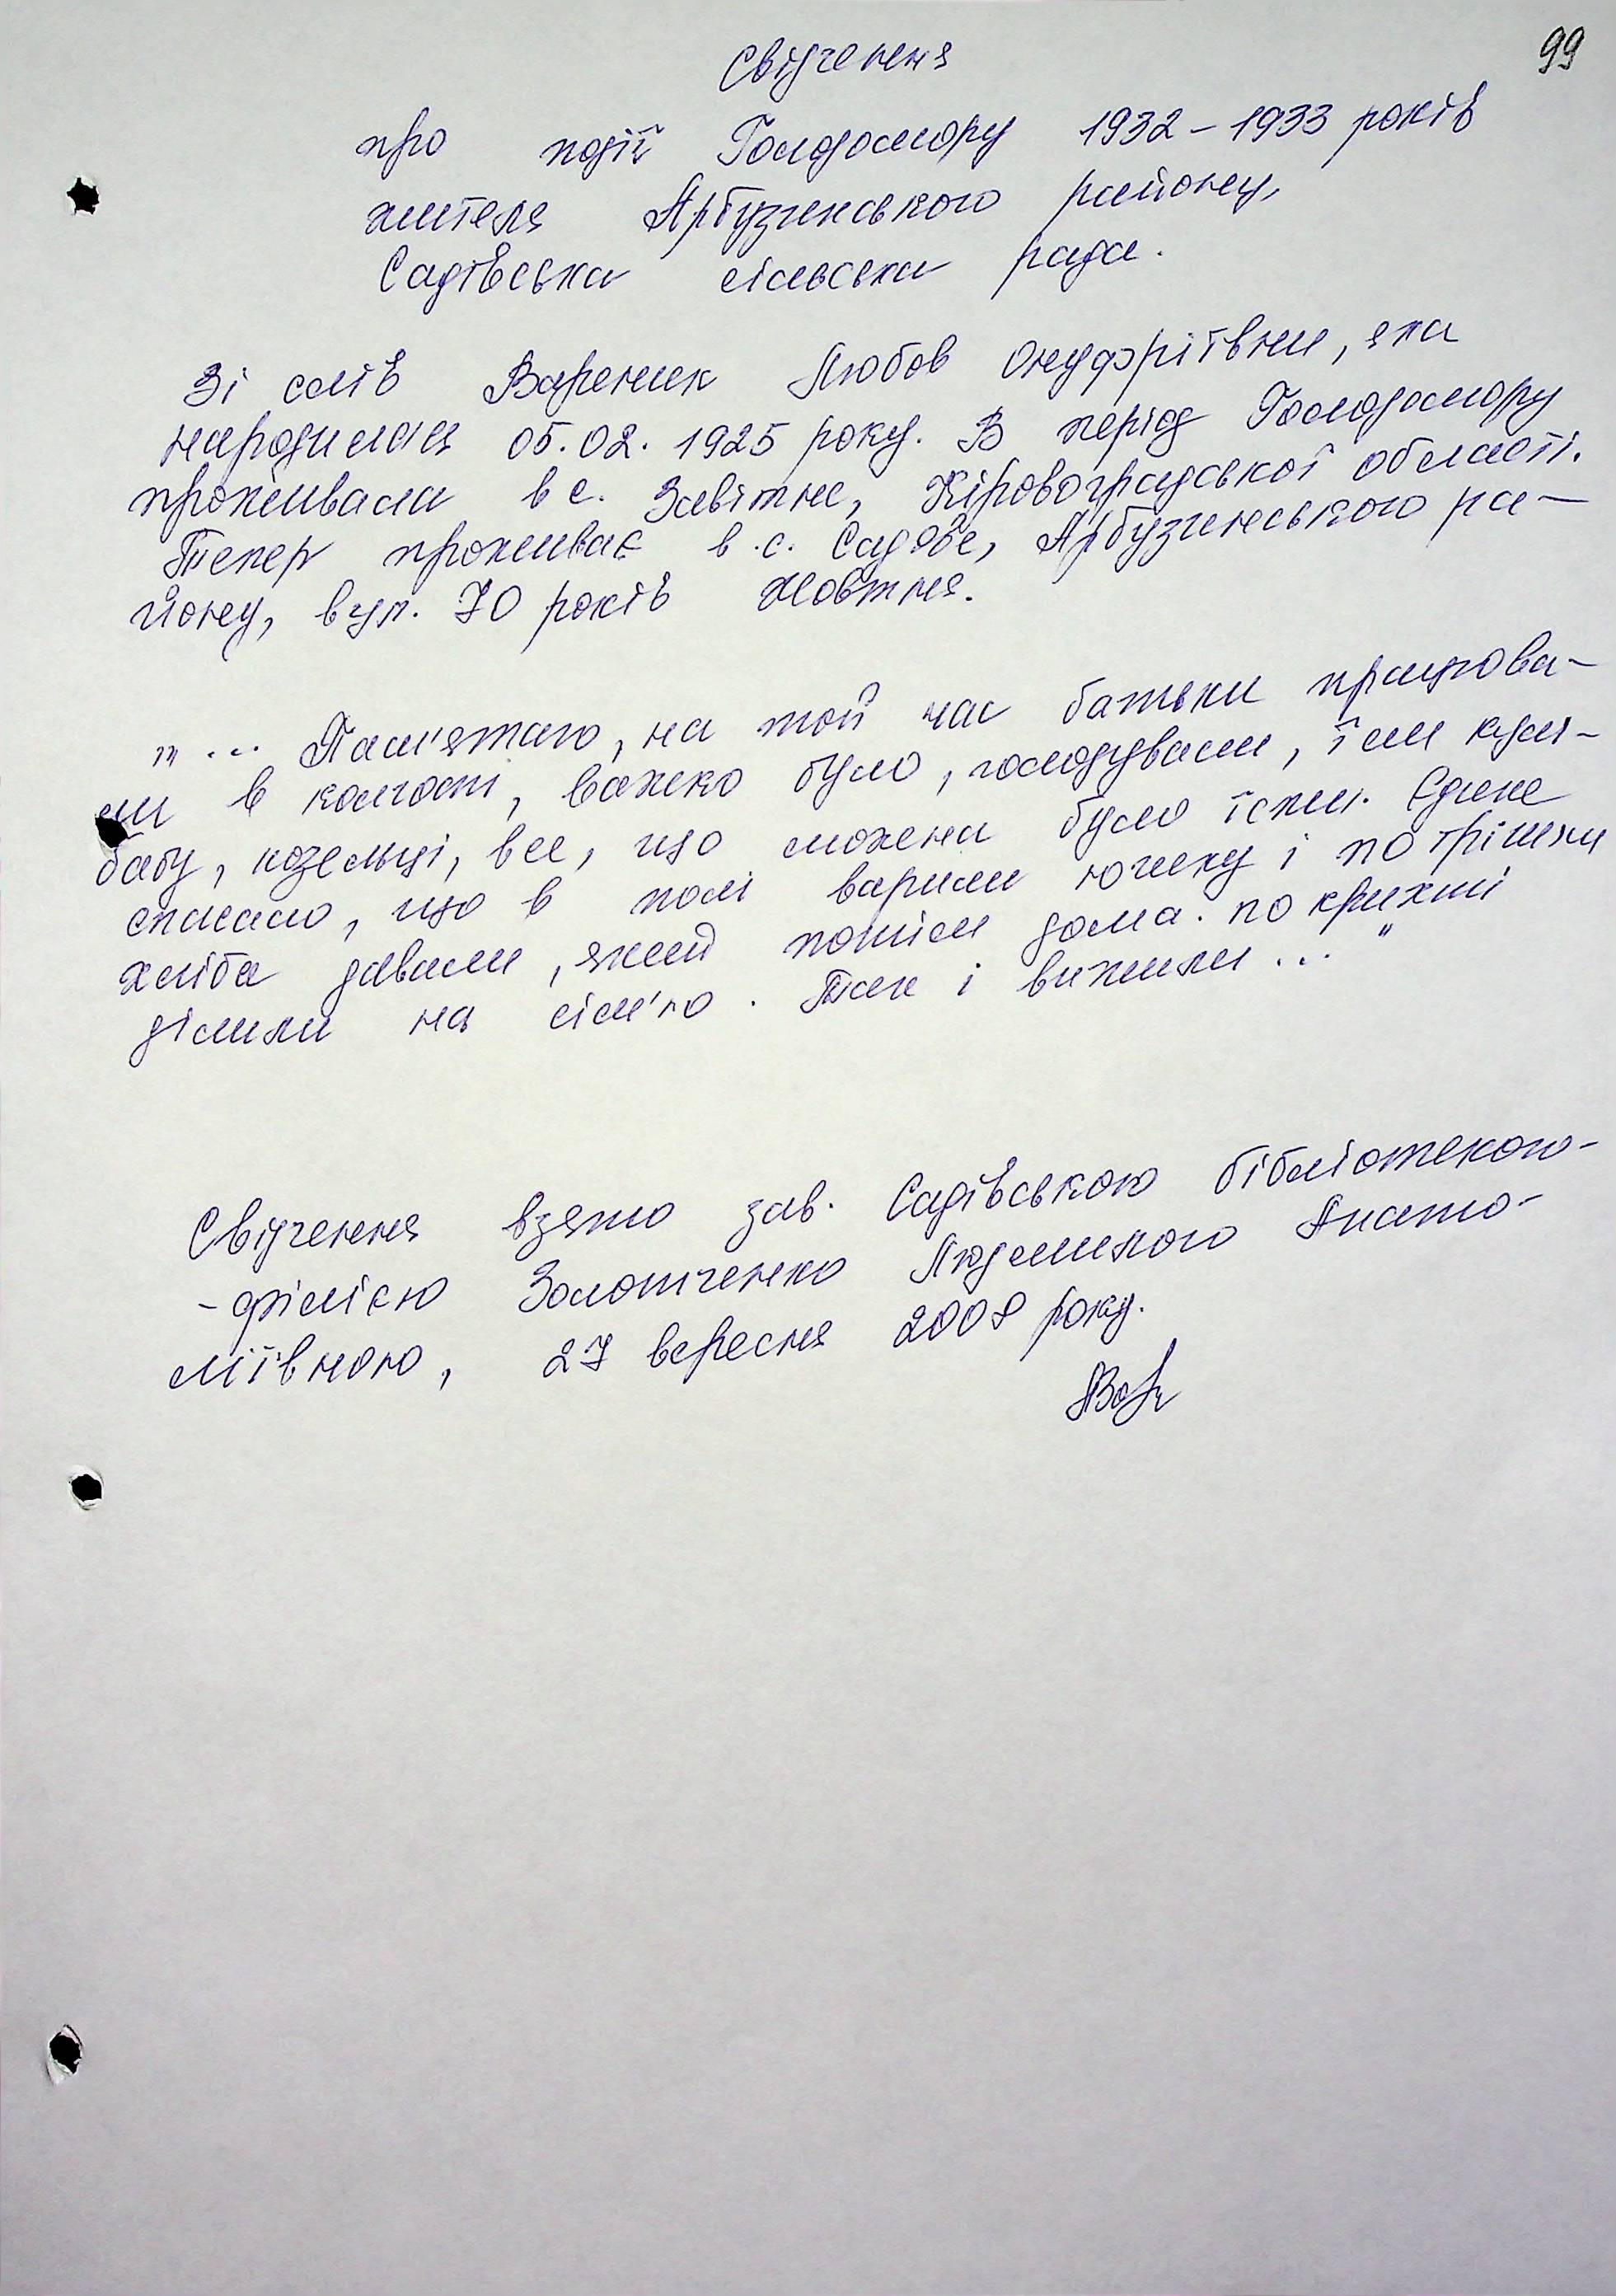 99
Свідчення
про події Голодомору 1932-1933 років
жителя Арбузинського району,
Садівська сільська рада.
Зі слів Вареник Любов Онуфріївни, яка
народилася 05.02.1925 року. В період Голодомору
проживала в с. Завітне, Кіровоградської області.
Тепер проживає в с. Садове, Арбузинського ра-
йону, вул. 70 років Жовтня.
"... Пам'ятаю, на той час батьки працюва-
ли в колгоспі, важко було, голодували, їли кулі-
бабу, козельці, все, що можна було їсти. Єдине
спасало, що в полі варили юшку і по трішки
хліба давали, який потім дома по крихті
ділили на сім'ю. Так і вижили..."
Свідчення взято зав. Садівською бібліотекою-
-філією Золотченко Людмилою Анато-
ліївною, 27 вересня 2008 року.